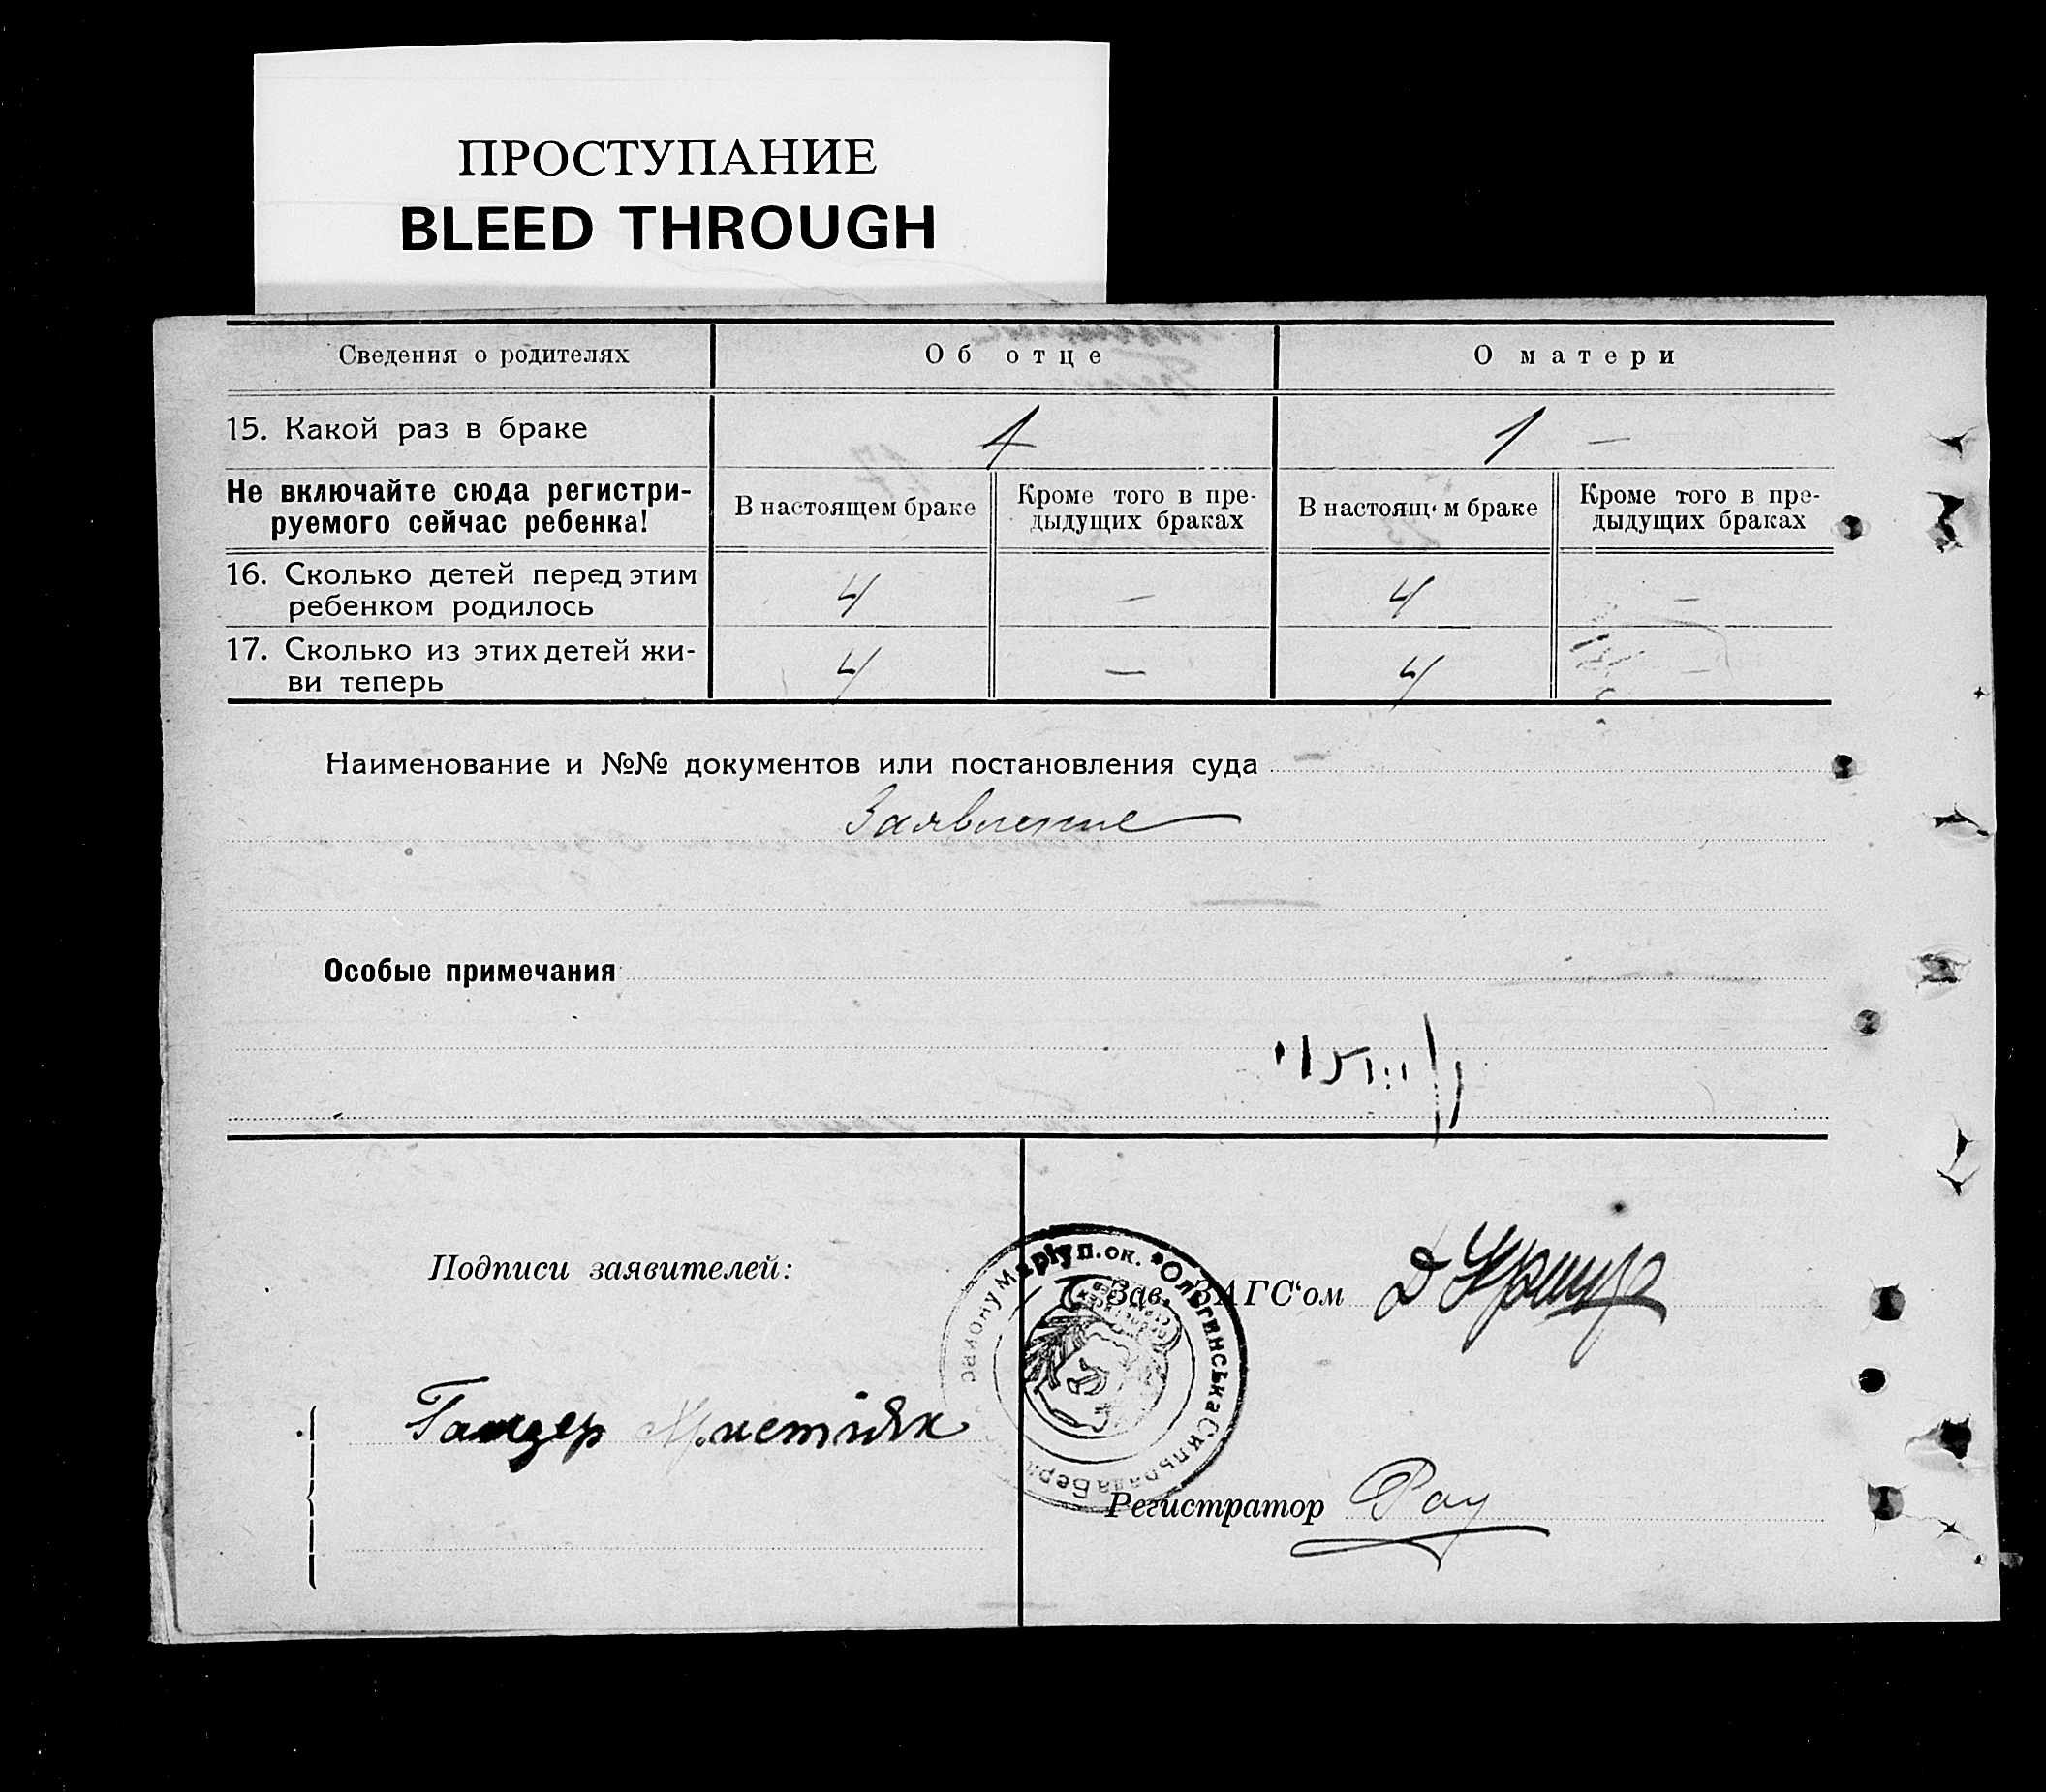 ПРОСТУПАНИЕ
BLEED THROUGH
Сведения о родителях
Об отце
О матери
15. Какой раз в браке
1
1 —
Не включайте сюда регистри-
руемого сейчас ребенка!
В настоящем браке
Кроме того в пре-
дыдущих браках
В настоящ м браке
Кроме того в пре-
дыдущих браках
16. Сколько детей перед этим
ребенком родилось
4
—
4
—
17. Сколько из этих детей жи-
ви теперь
4
—
4
—
Наименование и №№ документов или постановления суда —
Заявление
Особые примечания
Подписи заявителей:
Зав. ЗАГС‘ом
району Маріуп. ок. * Ольгинська Сильрада
Регистратор Рау